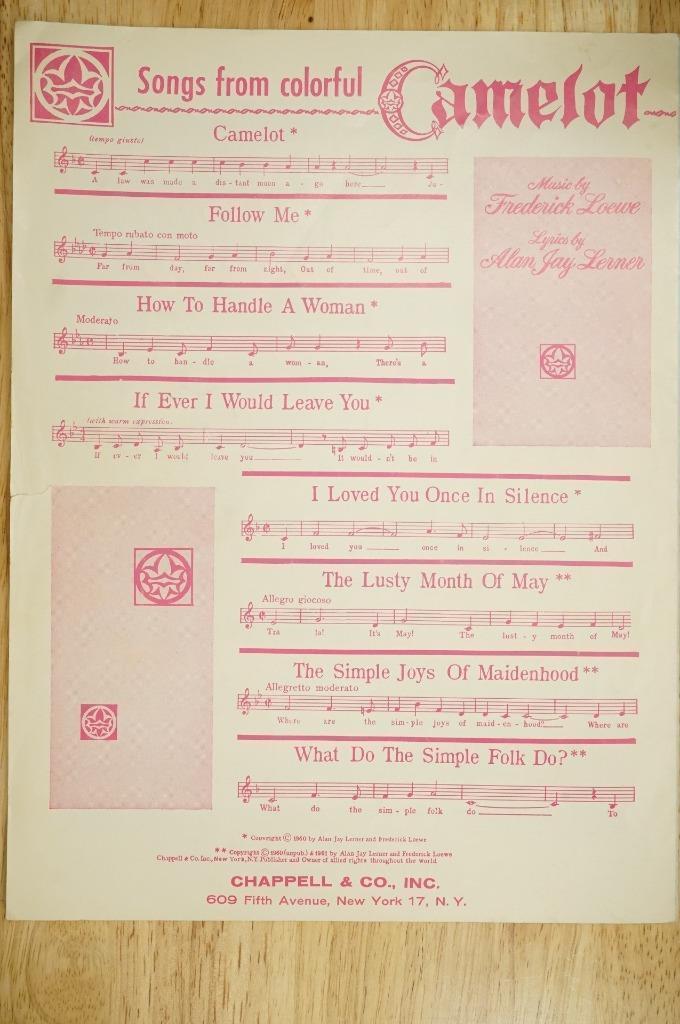 Songs from colorful Camelot
Camelot *
(tempo giusto)
A law was made a dis - tant moon a - go here Ju -
Follow Me *
Tempo rubato con moto
Far from day, far from night, Out of time, out of
How To Handle A Woman *
Moderato
How to han - dle a wom - an, There's a
If Ever I Would Leave You *
(with warm expression)
If ev - er I would leave you It would - n't be in
Music by
Frederick Loewe
Lyrics by
Alan Jay Lerner
I Loved You Once In Silence *
I loved you once in si - lence And
The Lusty Month Of May **
Allegro giocoso
Tra la! It's May! The lust - y month of May!
The Simple Joys Of Maidenhood **
Allegretto moderato
Where are the sim - ple joys of maid - en - hood? Where are
What Do The Simple Folk Do? **
What do the sim - ple folk do To
* Copyright © 1960 by Alan Jay Lerner and Frederick Loewe
** Copyright © 1960 (unpub.) & 1961 by Alan Jay Lerner and Frederick Loewe
Chappell & Co. Inc., New York, N.Y. Publisher and Owner of allied rights throughout the world
CHAPPELL & CO., INC.
609 Fifth Avenue, New York 17, N. Y.